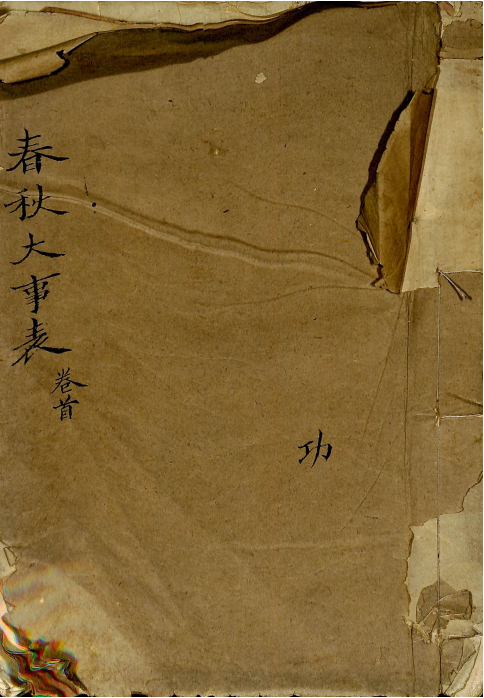 功
春秋大事表
卷首